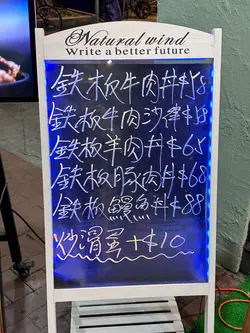 Natural wind
Write a better future
鉄板牛肉丼$58
鉄板牛肉沙律$58
鉄板羊肉丼$65
鉄板豚肉丼$68
鉄板鰻魚丼$88
炒滑蛋+$10